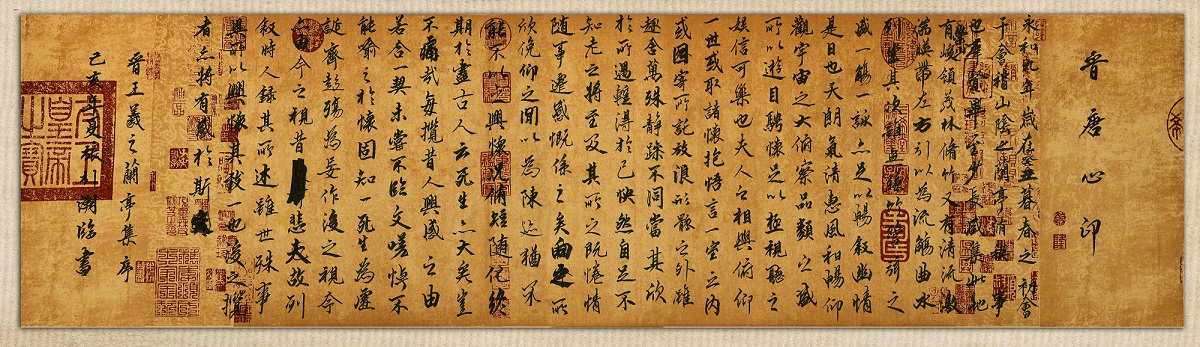 晉唐心印
永和九年歲在癸丑暮春之初會
于會稽山陰之蘭亭脩禊事
也羣賢畢至少長咸集此地
有崇山峻領茂林脩竹又有清流激
湍暎帶左右引以為流觴曲水
列坐其次雖無絲竹管弦之
盛一觴一詠亦足以暢敘幽情
是日也天朗氣清惠風和暢仰
觀宇宙之大俯察品類之盛
所以遊目騁懷足以極視聽之
娛信可樂也夫人之相與俯仰
一世或取諸懷抱悟言一室之內
或因寄所託放浪形骸之外雖
趣舍萬殊靜躁不同當其欣
於所遇輒得於己怏然自足不
知老之將至及其所之既惓情
隨事遷感慨係之矣向之所
欣俛仰之間以為陳迹猶不
能不以之興懷況脩短隨化終
期於盡古人云死生亦大矣豈
不痛哉每攬昔人興感之由
若合一契未嘗不臨文嗟悼不
能喻之於懷固知一死生為虛
誕齊彭殤為妄作後之視今
亦由今之視昔悲夫故列
敘時人錄其所述雖世殊事
異所以興懷其致一也後之攬
者亦將有感於斯文
晉王羲之蘭亭集序
己亥年夏臨書